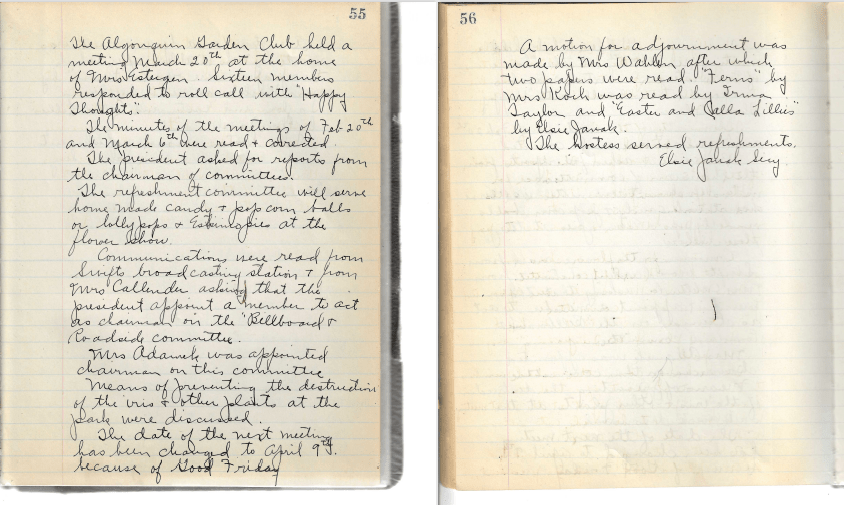 55
The Algonquin Garden Club held a
meeting March 20th at the home
of Mrs Estergen. Sixteen members
responded to roll call with "Happy
Thoughts."
The minutes of the meetings of Feb 20th
and March 6th were read & corrected.
The president asked for reports from
the chairman of committees.
The refreshment committee will serve
home made candy & pop corn balls
or lolly pops & Eskimo pies at the
flower show.
Communications were read from
Swifts broadcasting station & from
Mrs Callender asking that the
president appoint a member to act
as chairman on the "Bellboard &
Roadside committee.
Mrs Adamek was appointed
chairman on this committee
Means of preventing the destruction
of the iris & other plants at the
park were discussed.
The date of the next meeting
has been changed to April 9th.
because of Good Friday
56
A motion for adjournment was
made by Mrs Wahlen after which
two papers were read. "Ferns" by
Mrs Koch was read by Irma
Taylor and "Easter and Calla Lillies"
by Elsie Janak.
The hostess served refreshments.
Elsie Janak Secy.